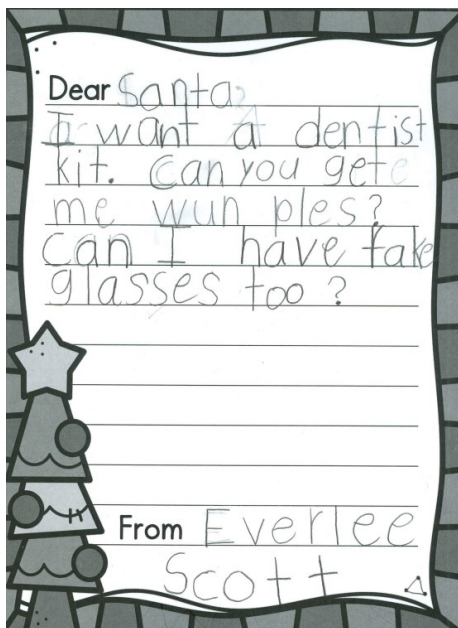 Dear Santa,
I want a dentist
kit. Can you get
me wun ples?
can I have fake
glasses too?
From Everlee
Scott